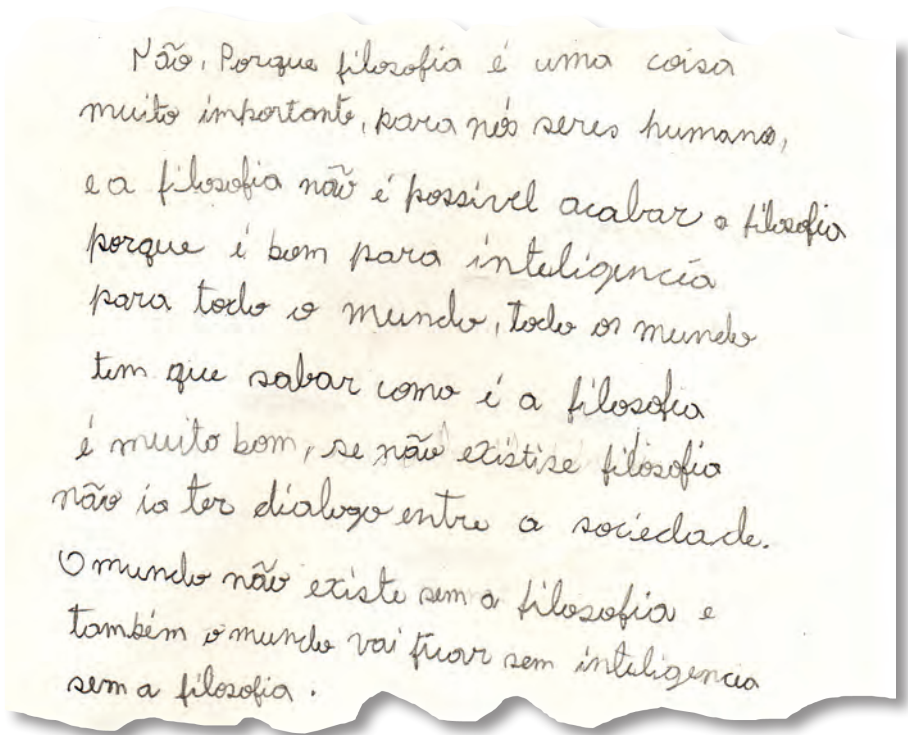 Não, Porque filosofia é uma coisa
muito importante, para nós seres humano,
e a filosofia não é possivel acabar a filosofia
porque é bom para inteligencia
para todo o mundo, todo o mundo
tem que sabar como é a filosofia
é muito bom, se não existise filosofia
não ia ter dialogo entre a sociedade.
O mundo não existe sem a filosofia e
também o mundo vai ficar sem inteligencia
sem a filosofia.